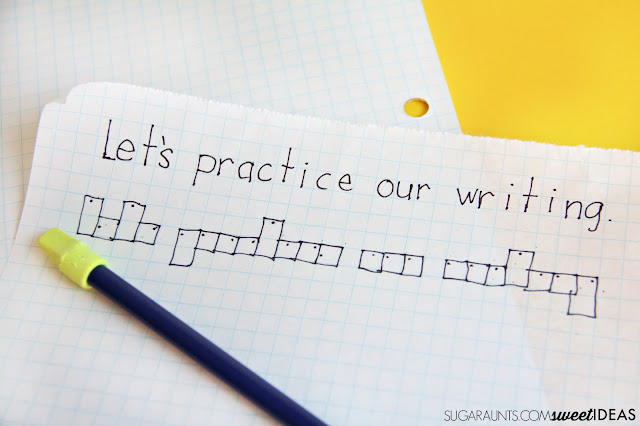 Let's practice our writing.
SUGARAUNTS.COM sweetIDEAS